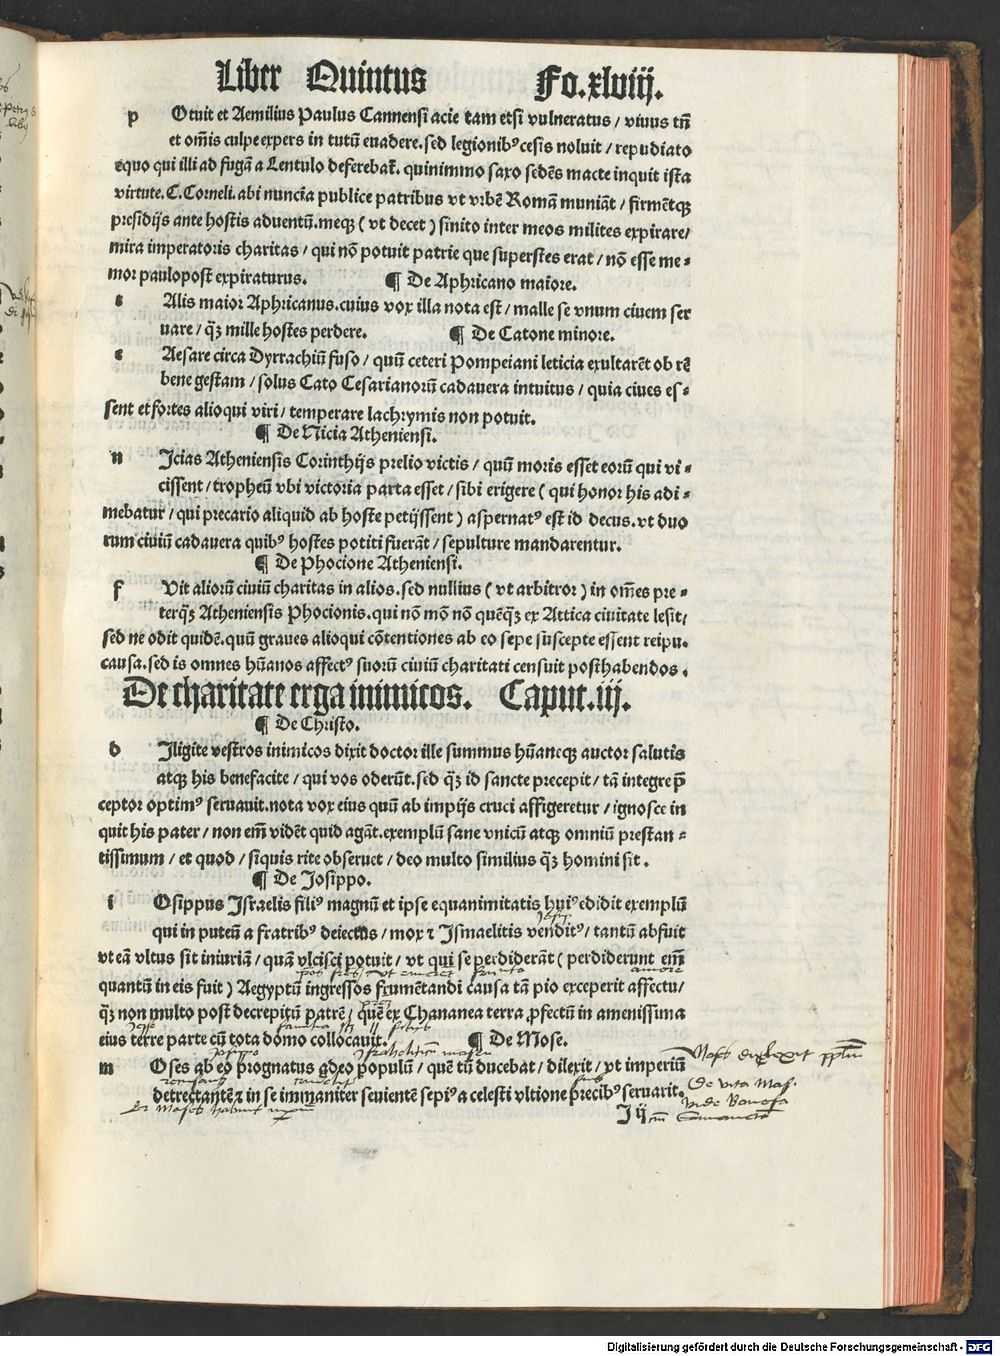 Liber Quintus Fo.xlviij.
p Otuit et Aemilius Paulus Cannensi acie tam etsi vulneratus / viuus tñ
et om̃is culpe expers in tutũ euadere. sed legionib⁹ cesis noluit / repudiato
equo qui illi ad fugã a Lentulo deferebat̃. quinimmo saxo sedẽs macte inquit ista
virtute. C. Corneli. abi nuncia publice patribus vt vrbẽ Romã muniãt / firmẽtqꝫ
presidijs ante hostis aduentũ. meqꝫ ( vt decet ) sinito inter meos milites expirare /
mira imperatoris charitas / qui nõ potuit patrie que superstes erat / nõ esse me-
mor paulopost expiraturus. ¶ De Aphricano maiore.
t Alis maior Aphricanus. cuius vox illa nota est / malle se vnum ciuem ser
uare / qꝫ̃ mille hostes perdere. ¶ De Catone minore.
c Aesare circa Dyrrachiũ fuso / quũ ceteri Pompeiani leticia exultarẽt ob rẽ
bene gestam / solus Cato Cesarianorũ cadauera intuitus / quia ciues es-
sent et fortes alioqui viri / temperare lachrymis non potuit.
¶ De Nicia Atheniensi.
n Icias Atheniensis Corinthijs prelio victis / quũ moris esset eorũ qui vi-
cissent / tropheũ vbi victoria parta esset / sibi erigere ( qui honor his adi-
mebatur / qui precario aliquid ab hoste petijssent ) aspernat⁹ est id decus. vt duo
rum ciuiũ cadauera quib⁹ hostes potiti fuerãt / sepulture mandarentur.
¶ De Phocione Atheniensi.
f Vit aliorũ ciuiũ charitas in alios. sed nullius ( vt arbitror ) in om̃es pre-
terqꝫ̃ Atheniensis Phocionis. qui nõ mõ nõ quẽqꝫ̃ ex Attica ciuitate lesit /
sed ne odit quidẽ. quũ graues alioqui cõtentiones ab eo sepe suscepte essent reipu.
causa. sed is omnes hũanos affect⁹ suorũ ciuiũ charitati censuit posthabendos.
De charitate erga inimicos. Caput. iij.
¶ De Christo.
d Iligite vestros inimicos dixit doctor ille summus hũaneqꝫ auctor salutis
atqꝫ his benefacite / qui vos oderũt. sed qꝫ̃ id sancte precepit / tã integre p̃
ceptor optim⁹ seruauit. nota vox eius quũ ab impijs cruci affigeretur / ignosce in
quit his pater / non em̃ vidẽt quid agãt. exemplũ sane vnicũ atqꝫ omniũ prestan-
tissimum / et quod / siquis rite obseruet / deo multo similius qꝫ̃ homini sit.
¶ De Iosippo.
i Osippus Israelis fili⁹ magnũ et ipse equanimitatis hui⁹ edidit exemplũ
qui in puteũ a fratrib⁹ deiectus / mox ⁊ Ismaelitis vendit⁹ / tantũ abfuit
vt eã vltus sit iniuriã / quã vlcisci potuit / vt qui se perdiderãt ( perdiderunt em̃
quantũ in eis fuit ) Aegyptũ ingressos frumẽtandi causa tã pio exceperit affectu /
qꝫ̃ non multo post decrepitũ patrẽ / quẽ ex Chananea terra ꝓfectũ in amenissima
eius terre parte cũ tota domo collocauit. ¶ De Mose.
m Oses ab eo prognatus adeo populũ / quẽ tũ ducebat / dilexit / vt imperiũ
detrectantẽ ⁊ in se immaniter seuientẽ sepi⁹ a celesti vltione precib⁹ seruarit.
I ij
De vita Mos.
Digitalisierung gefördert durch die Deutsche Forschungsgemeinschaft - DFG